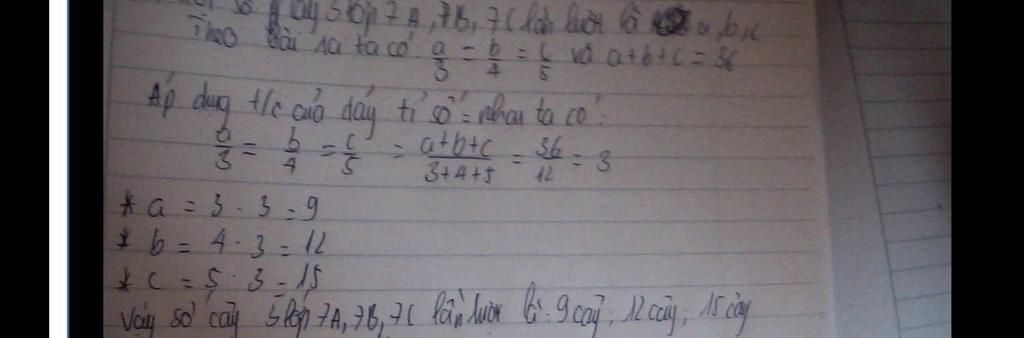 số cây 3 lớp 7A, 7B, 7C lần lượt là a, b, c
Theo bài ra ta có: a/3 = b/4 = c/5 và a+b+c = 36
Áp dụng t/c của dãy tỉ số = nhau ta có:
a/3 = b/4 = c/5 = (a+b+c)/(3+4+5) = 36/12 = 3
* a = 3 . 3 = 9
* b = 4 . 3 = 12
* c = 5 . 3 = 15
Vậy số cây 3 lớp 7A, 7B, 7C lần lượt là: 9 cây, 12 cây, 15 cây